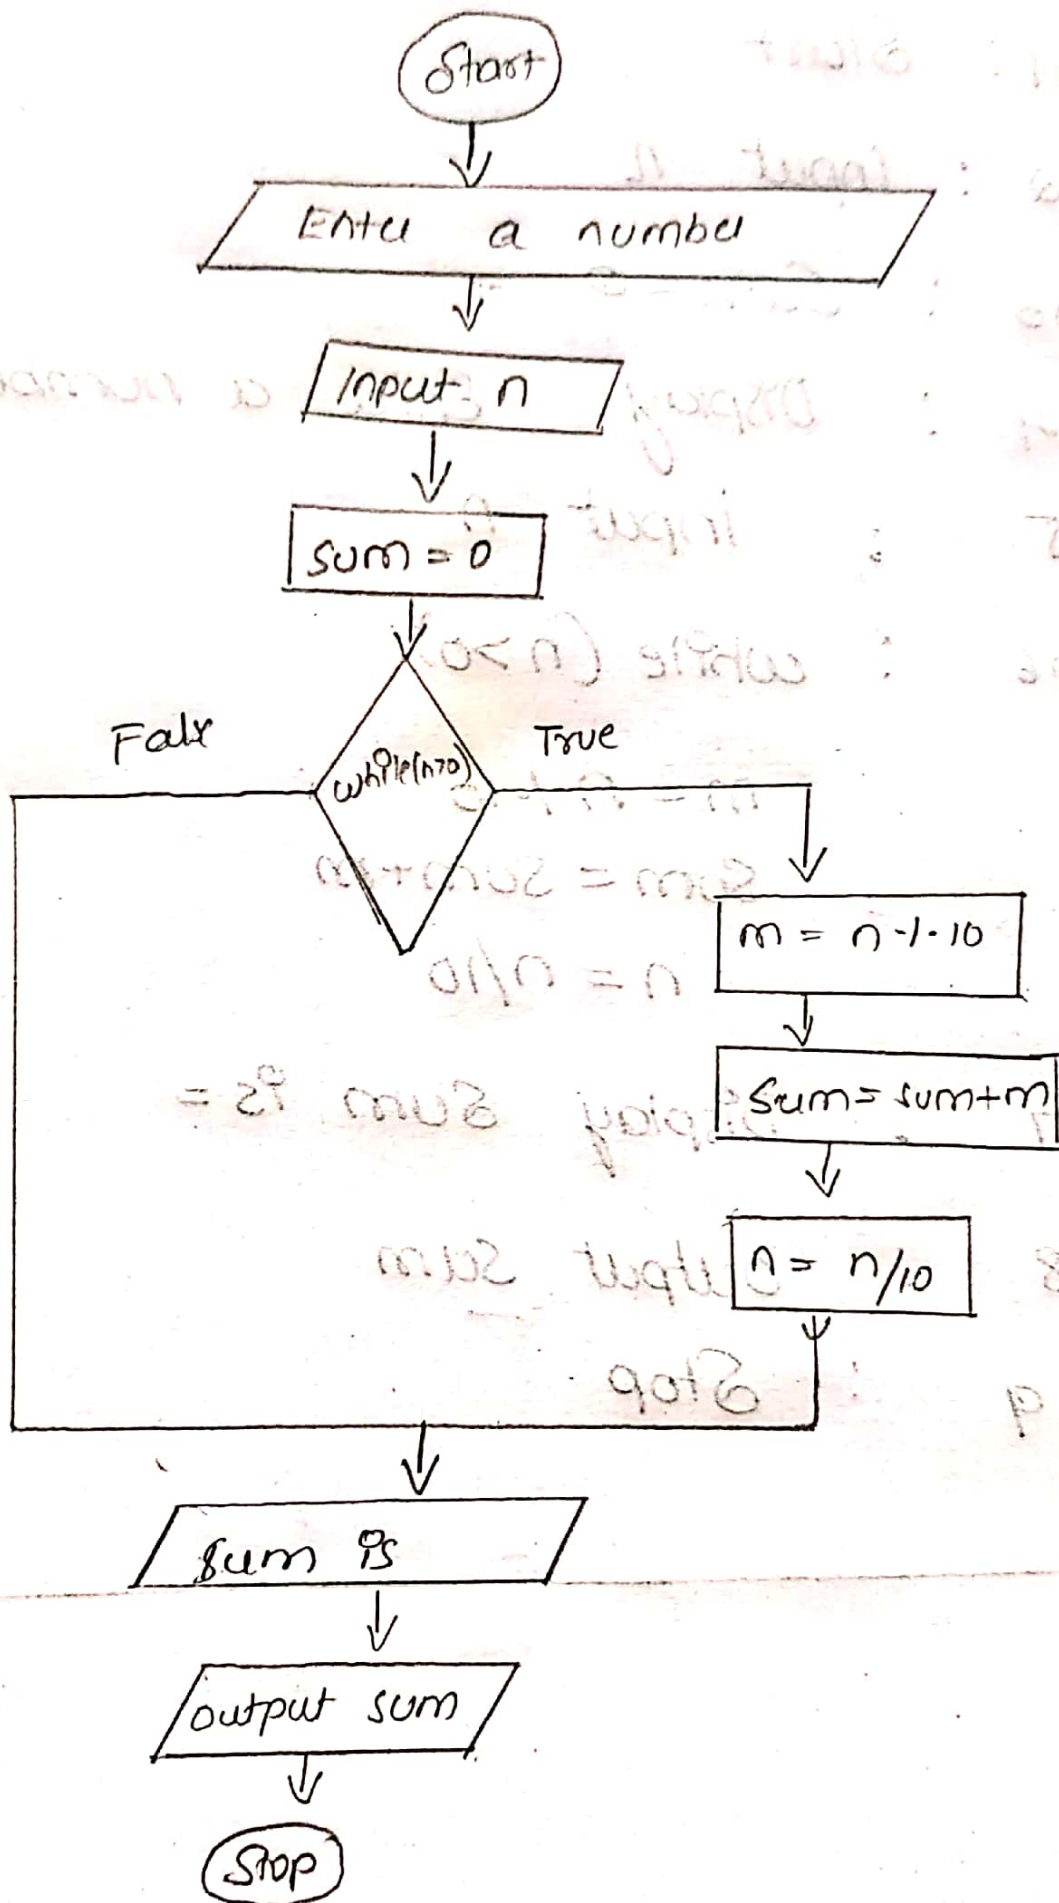 Start
Enter a number
Input n
sum = 0
while(n>0)
False
True
m = n % 10
Sum = sum+m
n = n/10
sum is
output sum
Stop